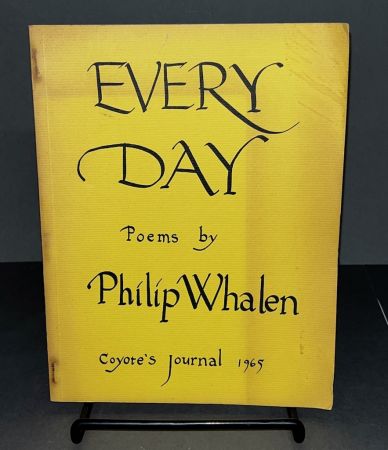 EVERY
DAY
Poems by
Philip Whalen
Coyote's Journal 1965